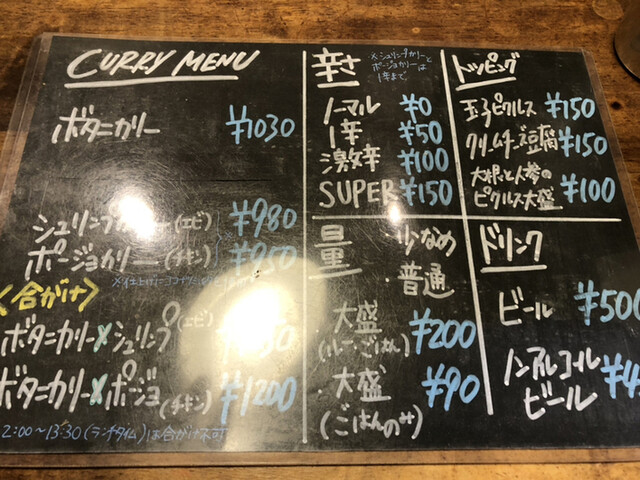 CURRY MENU
ボタニカリー ¥1030
シュリンプカリー(エビ) ¥980
ポージョカリー(チキン) ¥950
<合がけ>
ボタニカリー×シュリンプ(エビ)
ボタニカリー×ポージョ(チキン) ¥1200
2:00〜13:30(ランチタイム)は合がけ不可
辛さ
※シュリンプカリーと
ポージョカリーは
1辛まで
ノーマル ¥0
1辛 ¥50
激辛 ¥100
SUPER ¥150
量
少なめ
・普通
・大盛 ¥200
(ルー・ごはん)
・大盛 ¥90
(ごはんのみ)
トッピング
玉子ピクルス ¥150
クリームチーズ豆腐 ¥150
大根と人参の
ピクルス大盛 ¥100
ドリンク
ビール ¥500
ノンアルコール
ビール